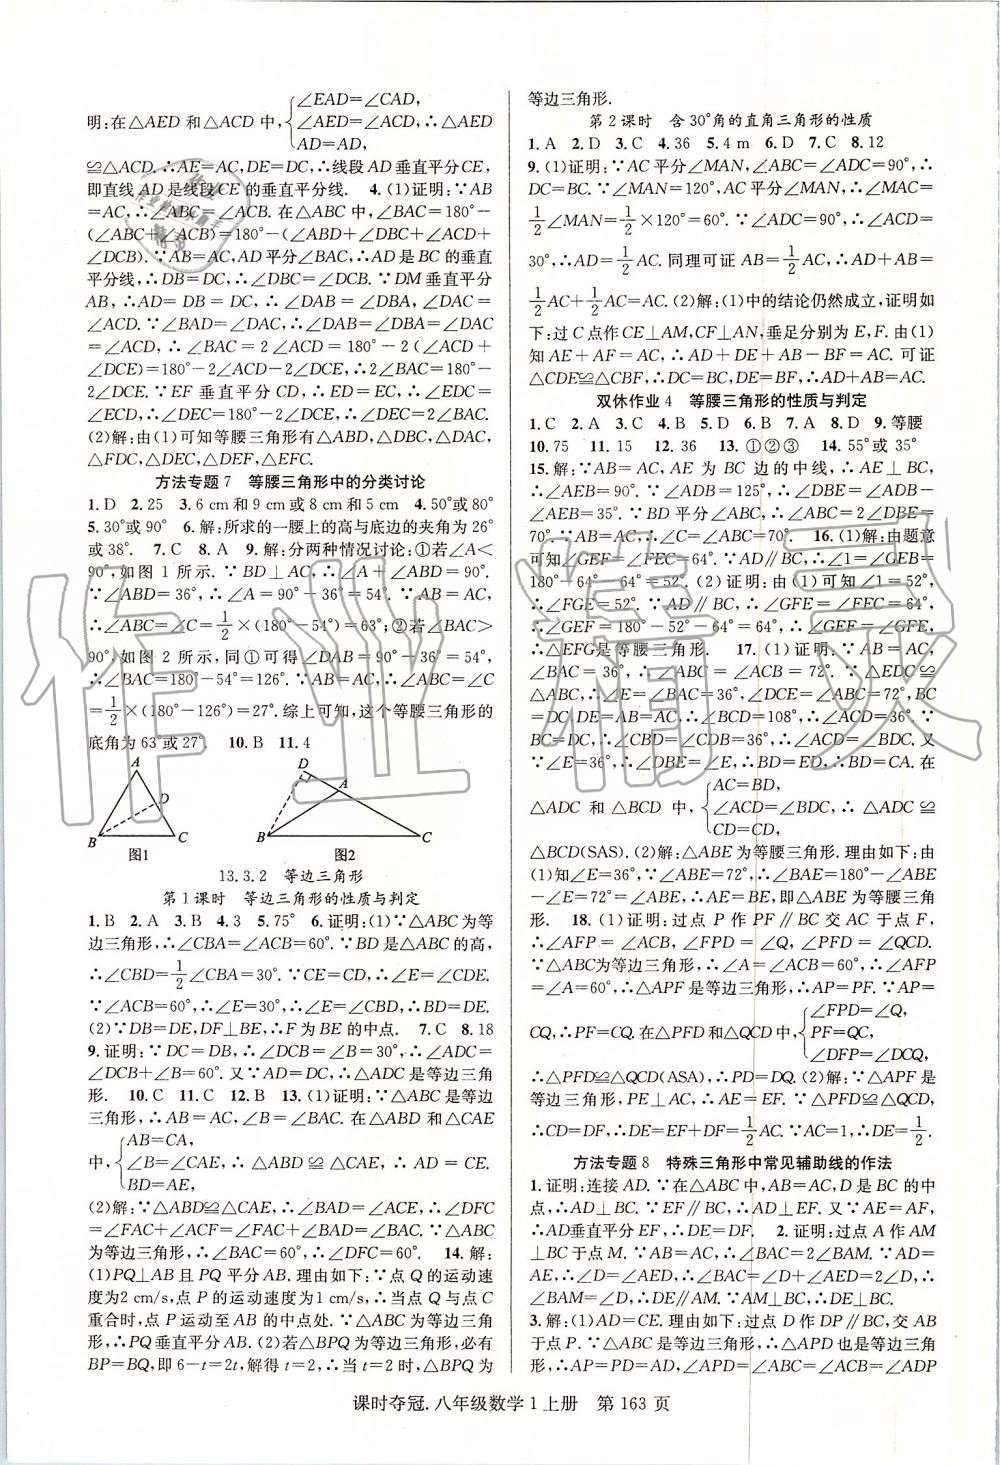 明:在△AED 和△ACD 中,{∠EAD=∠CAD,
∠AED=∠ACD,∴△AED
AD=AD,
≌△ACD.∴AE=AC,DE=DC,∴线段 AD 垂直平分CE,
即直线 AD 是线段CE 的垂直平分线. 4.(1)证明:∵AB
=AC,∴∠ABC=∠ACB.在△ABC 中,∠BAC=180°-
(∠ABC+∠ACB)=180°-(∠ABD+∠DBC+∠ACD+
∠DCB).∵AB=AC,AD平分∠BAC,∴AD 是 BC 的垂直
平分线,∴DB=DC,∴∠DBC=∠DCB.∵DM 垂直平分
AB,∴AD=DB=DC,∴∠DAB=∠DBA,∠DAC=
∠ACD.∵∠BAD=∠DAC,∴∠DAB=∠DBA=∠DAC
=∠ACD,∴∠BAC=2∠ACD=180°-2(∠ACD+
∠DCE)=180°-2∠ACD-2∠DCE,∴2∠BAC=180°-
2∠DCE.∵EF 垂直平分 CD,∴ED=EC,∴∠EDC=
∠ECD,∴∠DEC=180°-2∠DCE,∴∠DEC=2∠BAC.
(2)解:由(1)可知等腰三角形有△ABD,△DBC,△DAC,
△FDC,△DEC,△DEF,△EFC.
方法专题 7 等腰三角形中的分类讨论
1.D 2.25 3.6 cm和 9 cm或 8 cm和 5 cm 4.50°或 80°
5.30°或 90° 6.解:所求的一腰上的高与底边的夹角为 26°
或 38°. 7.C 8.A 9.解:分两种情况讨论:①若∠A<
90°,如图 1 所示.∵BD⊥AC,∴∠A+∠ABD=90°.
∵∠ABD=36°,∴∠A=90°-36°=54°.∵AB=AC,
∴∠ABC=∠C=1/2×(180°-54°)=63°;②若∠BAC>
90°,如图 2 所示,同①可得∠DAB=90°-36°=54°,
∴∠BAC=180°-54°=126°.∵AB=AC,∴∠ABC=∠C
=1/2×(180°-126°)=27°.综上可知,这个等腰三角形的
底角为 63°或 27°. 10.B 11.4
A
D
B
C
图1
D
A
B
C
图2
13.3.2 等边三角形
第 1 课时 等边三角形的性质与判定
1.B 2.A 3.B 4.3 5.75° 6.证明:(1)∵△ABC 为等
边三角形,∴∠CBA=∠ACB=60°.∵BD 是△ABC 的高,
∴∠CBD=1/2∠CBA=30°.∵CE=CD,∴∠E=∠CDE.
∵∠ACB=60°,∴∠E=30°,∴∠E=∠CBD,∴BD=DE.
(2)∵DB=DE,DF⊥BE,∴F 为 BE 的中点. 7.C 8.18
9.证明:∵DC=DB,∴∠DCB=∠B=30°,∴∠ADC=
∠DCB+∠B=60°.又∵AD=DC,∴△ADC 是等边三角
形. 10.C 11.C 12.B 13.(1)证明:∵△ABC 是等边三
角形,∴AB=AC,∠B=∠BAC.在△ABD 和△CAE
中,{AB=CA,
∠B=∠CAE,∴△ABD≌△CAE,∴AD=CE.
BD=AE,
(2)解:∵△ABD≌△CAE,∴∠BAD=∠ACE,∴∠DFC
=∠FAC+∠ACF=∠FAC+∠BAD=∠BAC.∵△ABC
为等边三角形,∴∠BAC=60°,∴∠DFC=60°. 14.解:
(1)PQ⊥AB 且 PQ 平分 AB.理由如下:∵点 Q 的运动速
度为2 cm/s,点 P 的运动速度为1 cm/s,∴当点 Q 与点 C
重合时,点 P 运动至 AB 的中点处.∵△ABC 为等边三角
形,∴PQ 垂直平分 AB.(2)若△BPQ 为等边三角形,必有
BP=BQ,即 6-t=2t,解得 t=2,∴当 t=2 时,△BPQ 为
等边三角形.
第 2 课时 含 30°角的直角三角形的性质
1.A 2.D 3.C 4.36 5.4 m 6.D 7.C 8.12
9.(1)证明:∵AC 平分∠MAN,∠ABC=∠ADC=90°,∴
DC=BC.∵∠MAN=120°,AC 平分∠MAN,∴∠MAC=
1/2∠MAN=1/2×120°=60°.∵∠ADC=90°,∴∠ACD=
30°,∴AD=1/2AC.同理可证 AB=1/2AC,∴AD+AB=
1/2AC+1/2AC=AC.(2)解:(1)中的结论仍然成立,证明如
下:过 C 点作 CE⊥AM,CF⊥AN,垂足分别为 E,F.由(1)
知 AE+AF=AC,∴AD+DE+AB-BF=AC.可证
△CDE≌△CBF,∴DC=BC,DE=BF,∴AD+AB=AC.
双休作业 4 等腰三角形的性质与判定
1.C 2.A 3.C 4.B 5.D 6.B 7.A 8.D 9.等腰
10.75 11.15 12.36 13.①②③ 14.55°或 35°
15.解:∵AB=AC,AE 为 BC 边的中线,∴∠AEB=
∠AEC=90°.∵∠ADB=125°,∴∠DBE=∠ADB-
∠AEB=35°.∵BD 平分∠ABC,∴∠ABC=2∠DBE=
70°.∵AB=AC,∴∠C=∠ABC=70°. 16.(1)解:由题意
可知∠GEF=∠FEC=64°.∵AD∥BC,∴∠1=∠GEB=
180°-64°-64°=52°.(2)证明:由(1)可知∠1=52°,
∴∠FGE=52°.∵AD∥BC,∴∠GFE=∠FEC=64°,
∴∠GEF=180°-52°-64°=64°,∴∠GEF=∠GFE,
∴△EFG是等腰三角形. 17.(1)证明:∵AB=AC,
∠BAC=36°,∴∠ABC=∠ACB=72°.∵△EDC≌
△ABC,∴∠E=∠BAC=36°,∠DCE=∠ABC=72°,BC
=DC,DE=AB,∴∠BCD=108°,∴∠ACD=36°.∵
BC=DC,∴∠CBD=∠CDB=36°,∴∠ACD=∠CDB.又
∵∠E=36°,∴∠DBE=∠E,∴BD=ED,∴BD=BA.在
△ADC 和△BCD 中,{AC=BD,
∠ACD=∠BDC,∴△ADC≌
CD=CD,
△BCD(SAS).(2)解:△ABE为等腰三角形.理由如下:由
(1)知∠E=36°,∠ABC=72°,∴∠BAE=180°-∠ABE
-∠E=72°=∠ABE,∴AE=BE,即△ABE为等腰三角
形. 18.(1)证明:过点 P 作 PF∥BC 交 AC 于点 F,
∴∠AFP=∠ACB,∠FPD=∠Q,∠PFD=∠QCD.
∵△ABC为等边三角形,∴∠A=∠ACB=60°,∴∠A=
∠AFP=60°,∴△APF 是等边三角形,∴AP=PF.∵AP=
CQ,∴PF=CQ.在△PFD 和△QCD 中,{∠FPD=∠Q,
PF=QC,
∠DFP=∠DCQ,
∴△PFD≌△QCD(ASA),∴PD=DQ.(2)解:∵△APF 是
等边三角形,PE⊥AC,∴AE=EF.∵△PFD≌△QCD,
∴CD=DF,∴DE=EF+DF=1/2AC.∵AC=1,∴DE=1/2.
方法专题 8 特殊三角形中常见辅助线的作法
1.证明:连接 AD.∵在△ABC 中,AB=AC,D 是 BC 的中
点,∴AD⊥BC.∵EF∥BC,∴AD⊥EF.又∵AE=AF,
∴AD垂直平分 EF,∴DE=DF. 2.证明:过点 A 作 AM
⊥BC 于点 M.∵AB=AC,∴∠BAC=2∠BAM.∵AD=
AE,∴∠D=∠AED,∴∠BAC=∠D+∠AED=2∠D,∴
∠BAM=∠D,∴DE∥AM.∵AM⊥BC,∴DE⊥BC.
3.解:(1)AD=CE.理由如下:过点 D 作 DP∥BC,交 AB
于点 P.∵△ABC 是等边三角形,∴△APD 也是等边三角
形,∴AP=PD=AD,∠APD=∠ABC=∠ACB=∠ADP
课时夺冠.八年级数学 1 上册 第 163 页
作业精灵